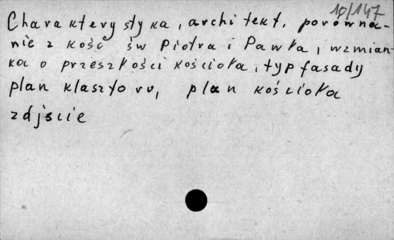 10/147
Charakterystyka, architekt. porówna-
nie z kość św Piotra i Pawła, wzmian-
ka o przeszłości kościoła, typ fasady
plan klasztoru, plan kościoła
zdjęcie